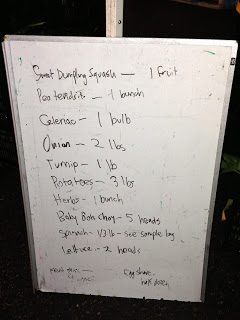 Sweet Dumpling Squash - 1 fruit
Pea tendrils - 1 bunch
Celeriac - 1 bulb
Onion - 2 lbs
Turnip - 1 lb
Potatoes - 3 lbs
Herbs - 1 bunch
Baby Bok Choy - 5 heads
Spinach - 1/3 lb - see sample bag
Lettuce - 2 heads
Egg share -
half dozen